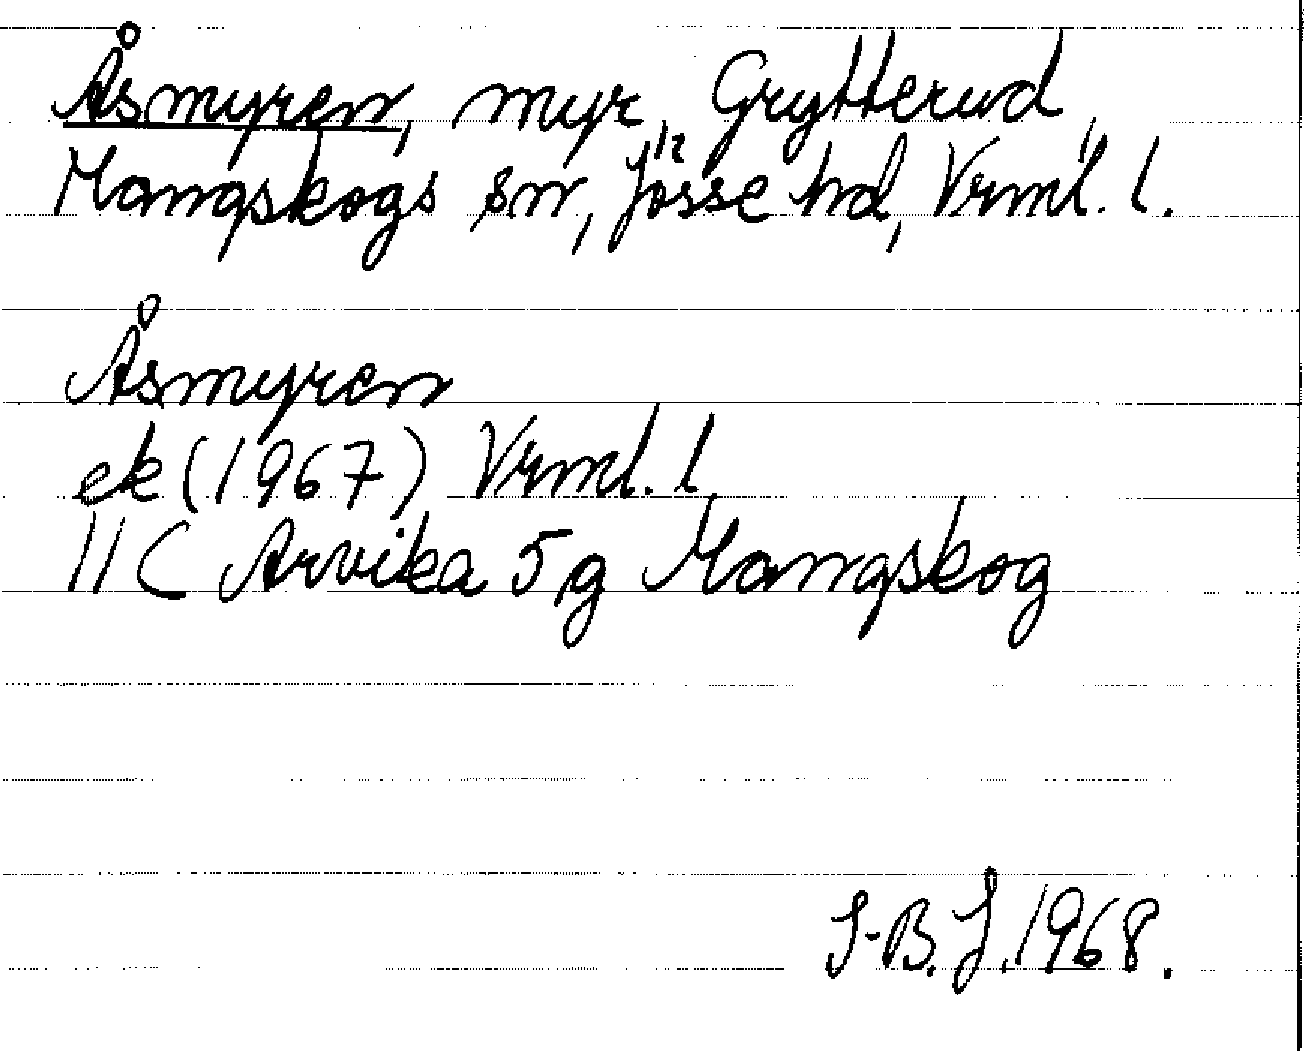 Åsmyren, myr, Grytterud,
Mangskogs sn, Jösse hd, Vrml. l.
Åsmyren
ek (1967) Vrml. l.
11 C Arvika 5 g Mangskog
S-B. J. 1968.